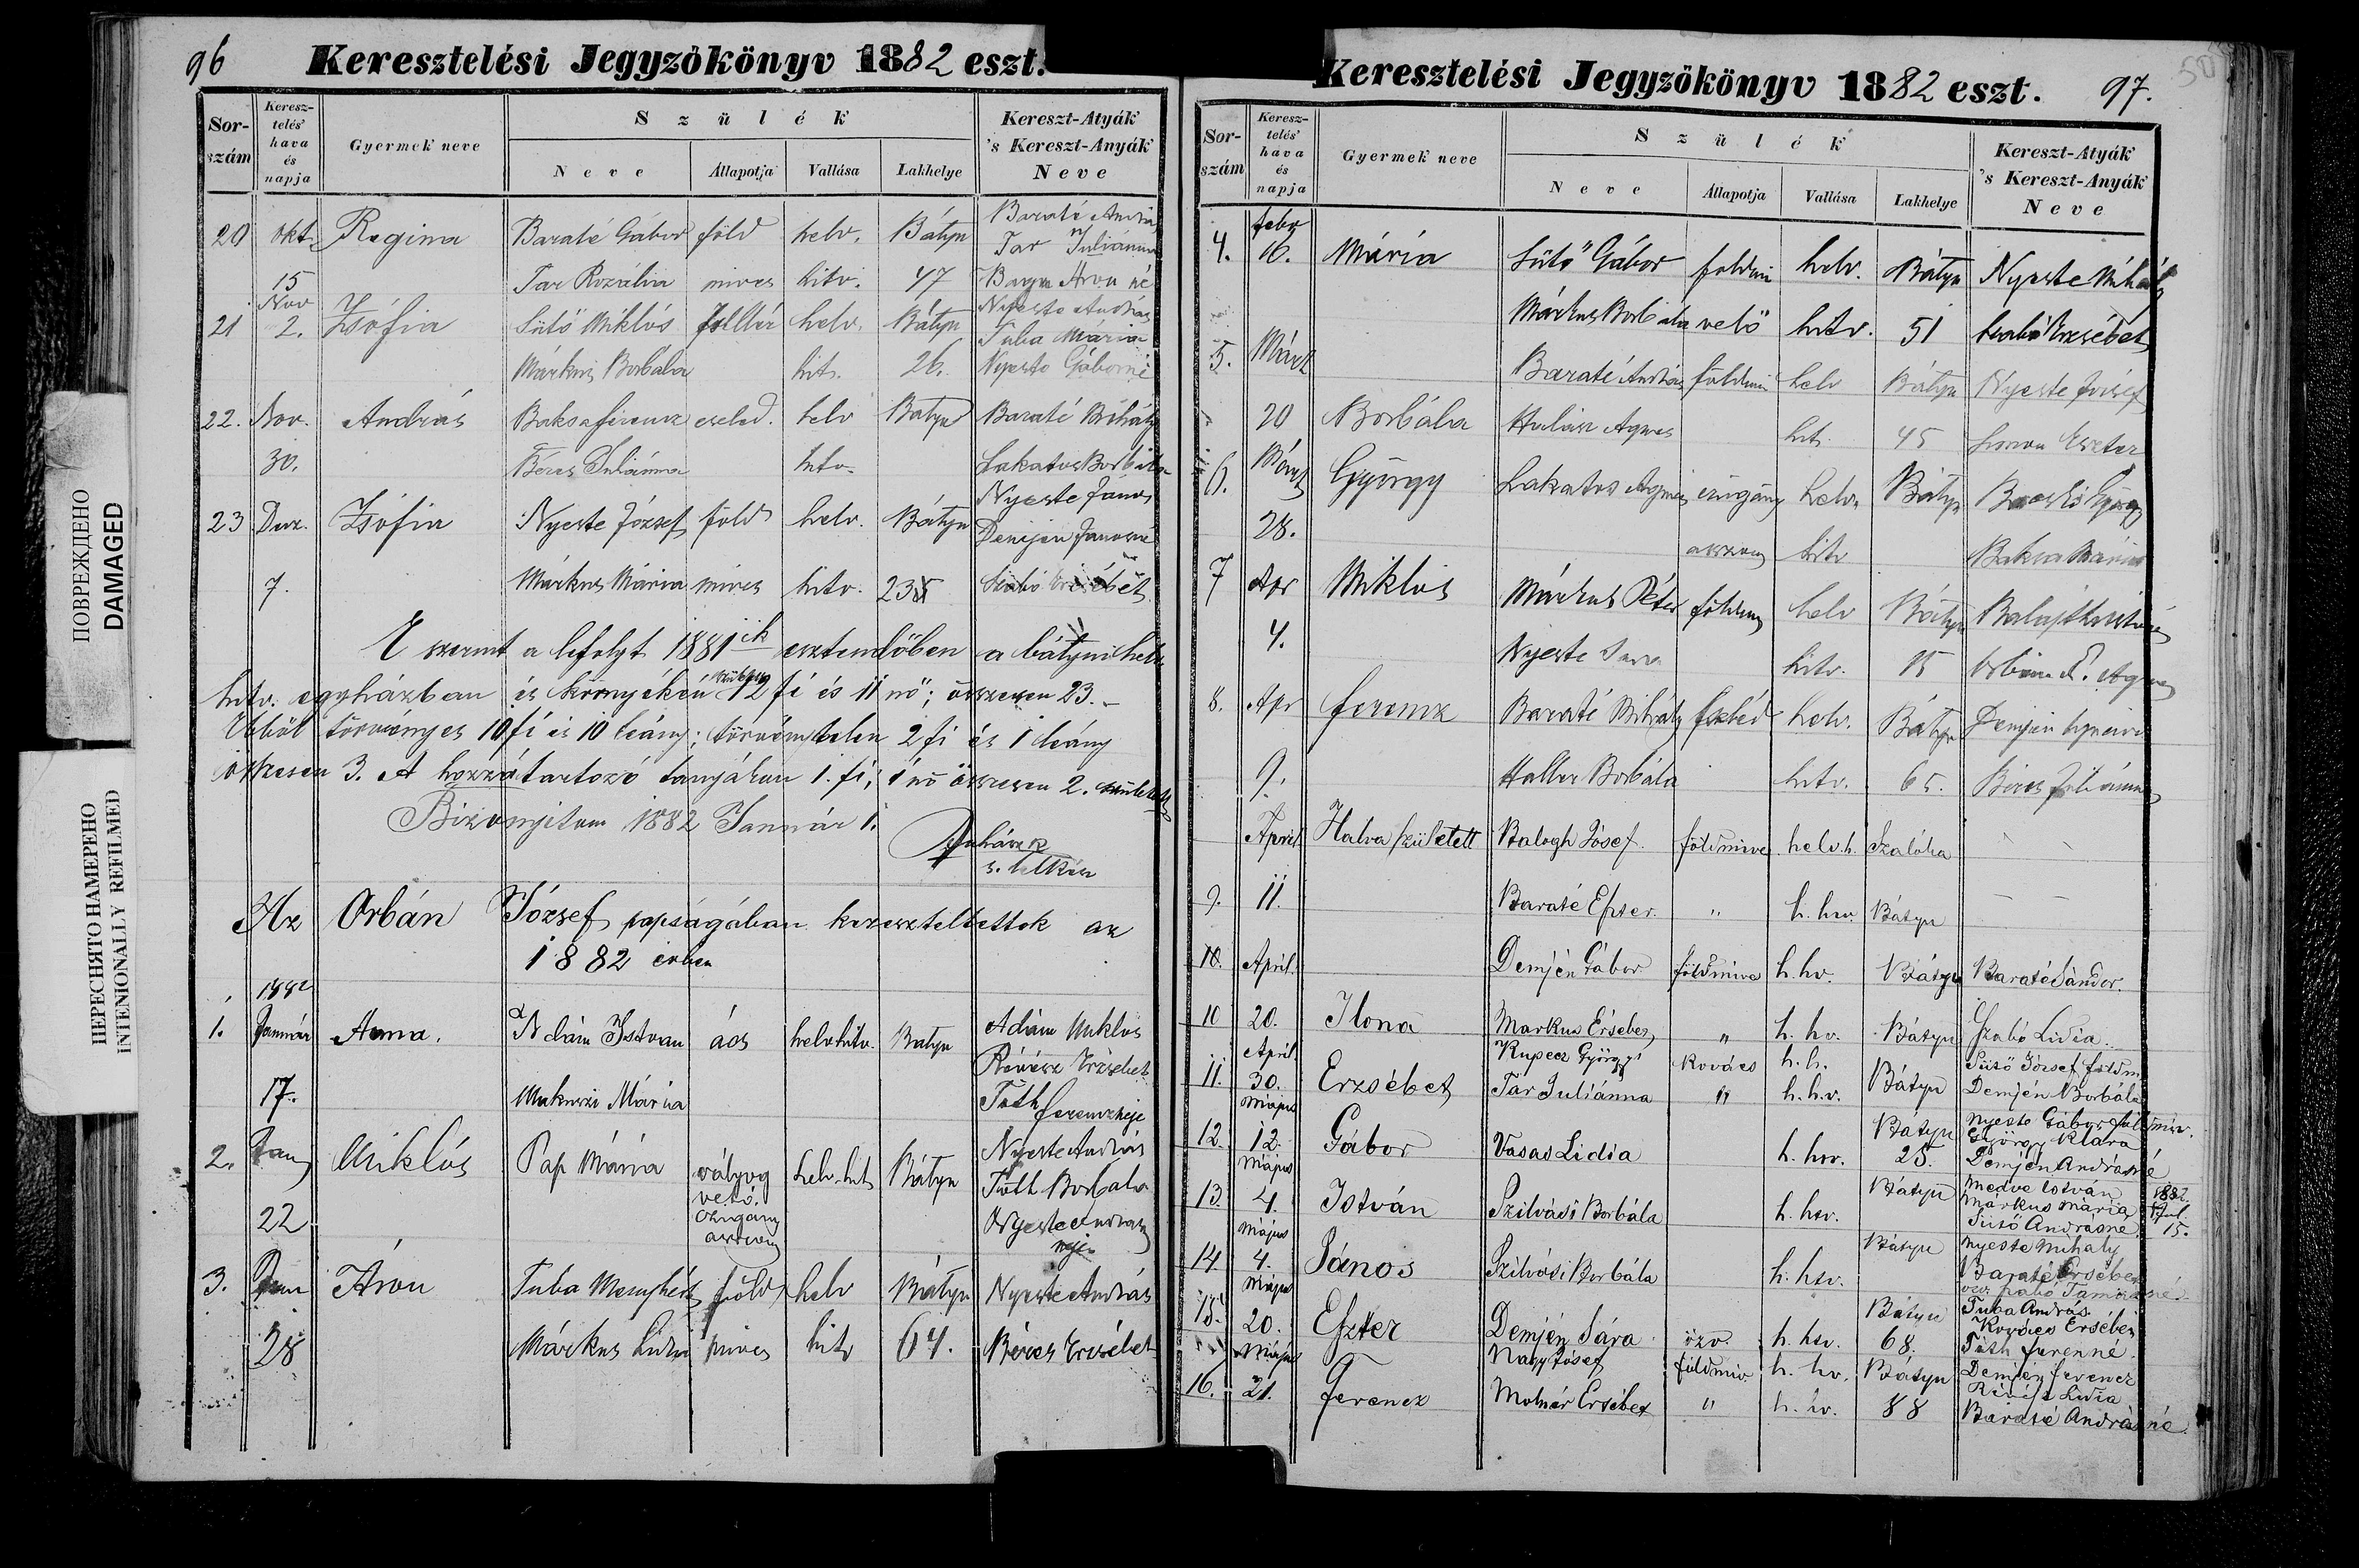 96 Keresztelési Jegyzökönyv 1882 eszt.
Sor-szám Keresz-telés' hava és napja Gyermek neve Szülék Kereszt-Atyák 's Kereszt-Anyák Neve
Neve Állapotja Vallása Lakhelye
20 okt. Regina Baraté Gábor föld helv. Bátyu Baraté András
Tar Juliánna
15 Tar Rozália mives hitv. 47
21 Nov 2. Zsófia Sütő Miklós helv. Bátyu Nyeste András
Tuba Mária
Márkus Borbála hit. 26. Nyeste Gáborné
22. Nov. András Baksa Ferencz cseled. helv Batyu Baraté Mihály
30. Béres Juliánna hitv. Lakatos Borbála
23 Dec. Zsófia Nyeste József föld helv. Bátyu Nyeste János
Demjén Jánosné
7. Márkus Mária mives hitv. 23 Szabó Erzsébet
E szerint a lefolyt 1881ik esztendőben a bátyui helv.
hitv. egyházban és környékén 12 fi és 11 nő; összesen 23.
Ebből törvényes 10 fi és 10 leány; törvénytelen 2 fi és 1 leány
összesen 3. A hozzátartozó tanyákon 1. fi, 1 nő összesen 2. született
Bizonyitom 1882 Január 1.
s. lelkész
Az Orbán József papságában kereszteltettek az
1882 évben
1882
1. Január Anna. Ádám Istvan ács helv. hitv. Batyu Adám Miklos
Révész Erzsébet
17. Mária Tóth Ferenczneje
2. Jan Miklós Pap Mária vályog vető czigány asszony helv. hit Bátyu Nyeste András
Tóth Borbala
22 Nyeste András neje
3. Jan Áron Tuba Menyhért föld helv Bátyu Nyeste András
28 Márkus Lidia mives hitv 64. Béres Erzsébet
Keresztelési Jegyzökönyv 1882 eszt. 97.
50
Sor-szám Keresz-telés' hava és napja Gyermek neve Szülék Kereszt-Atyák 's Kereszt-Anyák Neve
Neve Állapotja Vallása Lakhelye
4. febr 16. Mária Sütő Gábor földmi helv. Bátyu Nyeste Mihály
Márkus Borbála velő hitv. 51 Szabó Erzsébet
5. Márt Baraté András földmi helv Bátyu Nyeste József
20 Borbála Halász Agnes hit. 45 Eszter
6. Márt György Lakatos Agnes czigány helv. Bátyu György
28. asszony hitv Baksa Mária
7 Apr Miklós Márkus Péter földm helv Bátyu
4. Nyeste Sara hitv. 15
8. Apr Ferencz Baraté Mihály helv. Bátyu Demjén
9. Haller Borbála hitv. 65. Béres Juliánna
April Halva született Balogh Jósef. földmive helv. h. Szalóka
9. 11. Baraté Eszter. " h. hv. Bátyu
10. April. Demjén Gábor földmive h. hv. Bátyu Baraté Sándor.
10 20. Ilona Markus Ersébet " h. hv. Bátyu Szabó Lidia.
April Kupecz György kovács h. h. Sütő Jósef földm.
11. 30. Erzsébet Tar Juliánna " h. h.v. Bátyu Demjén Borbála
Május Bátyu Nyeste Gábor földmiv.
12. 12. Gábor Vasas Lidia h. hv. 25. György Klára
Demjén Andrásné
Május Bátyu Medve István 1882.
13. 4. István Szilvási Borbála h. hv. Márkus Mária Jul.
Sütő Andrásné 15.
Május Bátyu Nyeste Mihály
14. 4. János Szilvási Borbála h. hv. Baraté Ersébet
Május Bátyu Tuba András
15. 20. Eszter Demjén Sára özv. h. hv. 68. Kovács Ersébet
Tóth Ferenné
Május Nagy Jósef földmiv. h. hv. Bátyu Demjén Ferencz
16. 21. Ferencz Molnár Ersébet " h. hv. 88 Révész Lidia
Baraté Andrásné
ПОВРЕЖДЕНО
DAMAGED
ПЕРЕСНЯТО НАМЕРЕНО
INTENIONALLY REFILMED